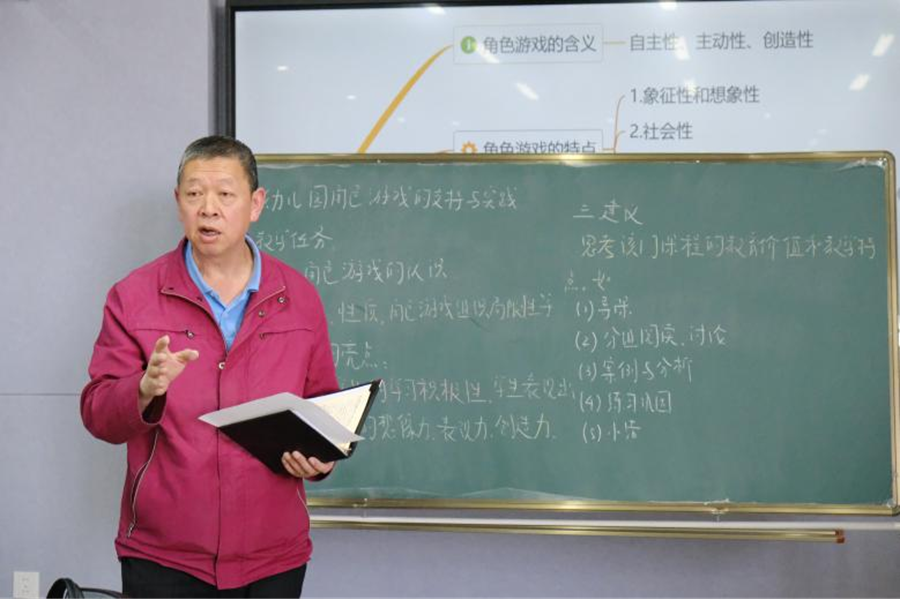 角色游戏的含义 自主性、主动性、创造性
1.象征性和想象性
2.社会性
角色游戏的特点
幼儿园角色游戏的支持与实践
教学任务
角色游戏的认识
性质、角色游戏组织局限性等
亮点：
学习积极性，学生表现出
的想象力、表现力、创造力.
三 建议
思考该门课程的教育价值和教学特
点，如
(1) 导课
(2) 分组阅读、讨论
(3) 案例与分析
(4) 练习巩固
(5) 小结